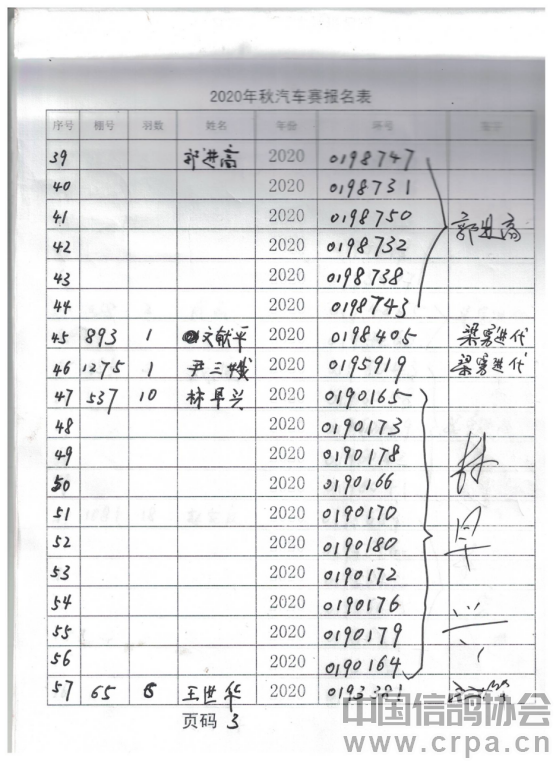 2020年秋汽车赛报名表
序号 棚号 羽数 姓名 年份 环号 签字
39 郭进高 2020 0198747
40 2020 0198731
41 2020 0198750 郭进高
42 2020 0198732
43 2020 0198738
44 2020 0198743
45 893 1 文献平 2020 0198405 梁勇进代
46 1275 1 尹三娥 2020 0195919 梁勇进代
47 537 10 林早兴 2020 0190165
48 2020 0190173
49 2020 0190178 林早兴
50 2020 0190166
51 2020 0190170
52 2020 0190180
53 2020 0190172
54 2020 0190176
55 2020 0190179
56 2020 0190164
57 65 王世华 2020
页码 3
中国信鸽协会
www.crpa.cn